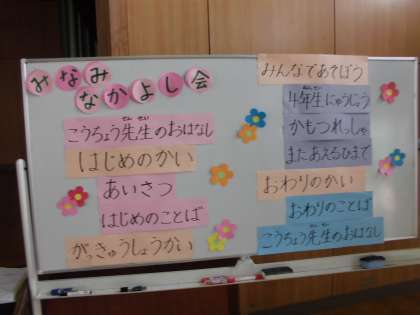 みなみ
なかよし会
こうちょう先生のおはなし
はじめのかい
あいさつ
はじめのことば
がっきゅうしょうかい
みんなであそぼう
4年生にゅうじょう
かもつれっしゃ
またあえるひまで
おわりのかい
おわりのことば
こうちょう先生のおはなし